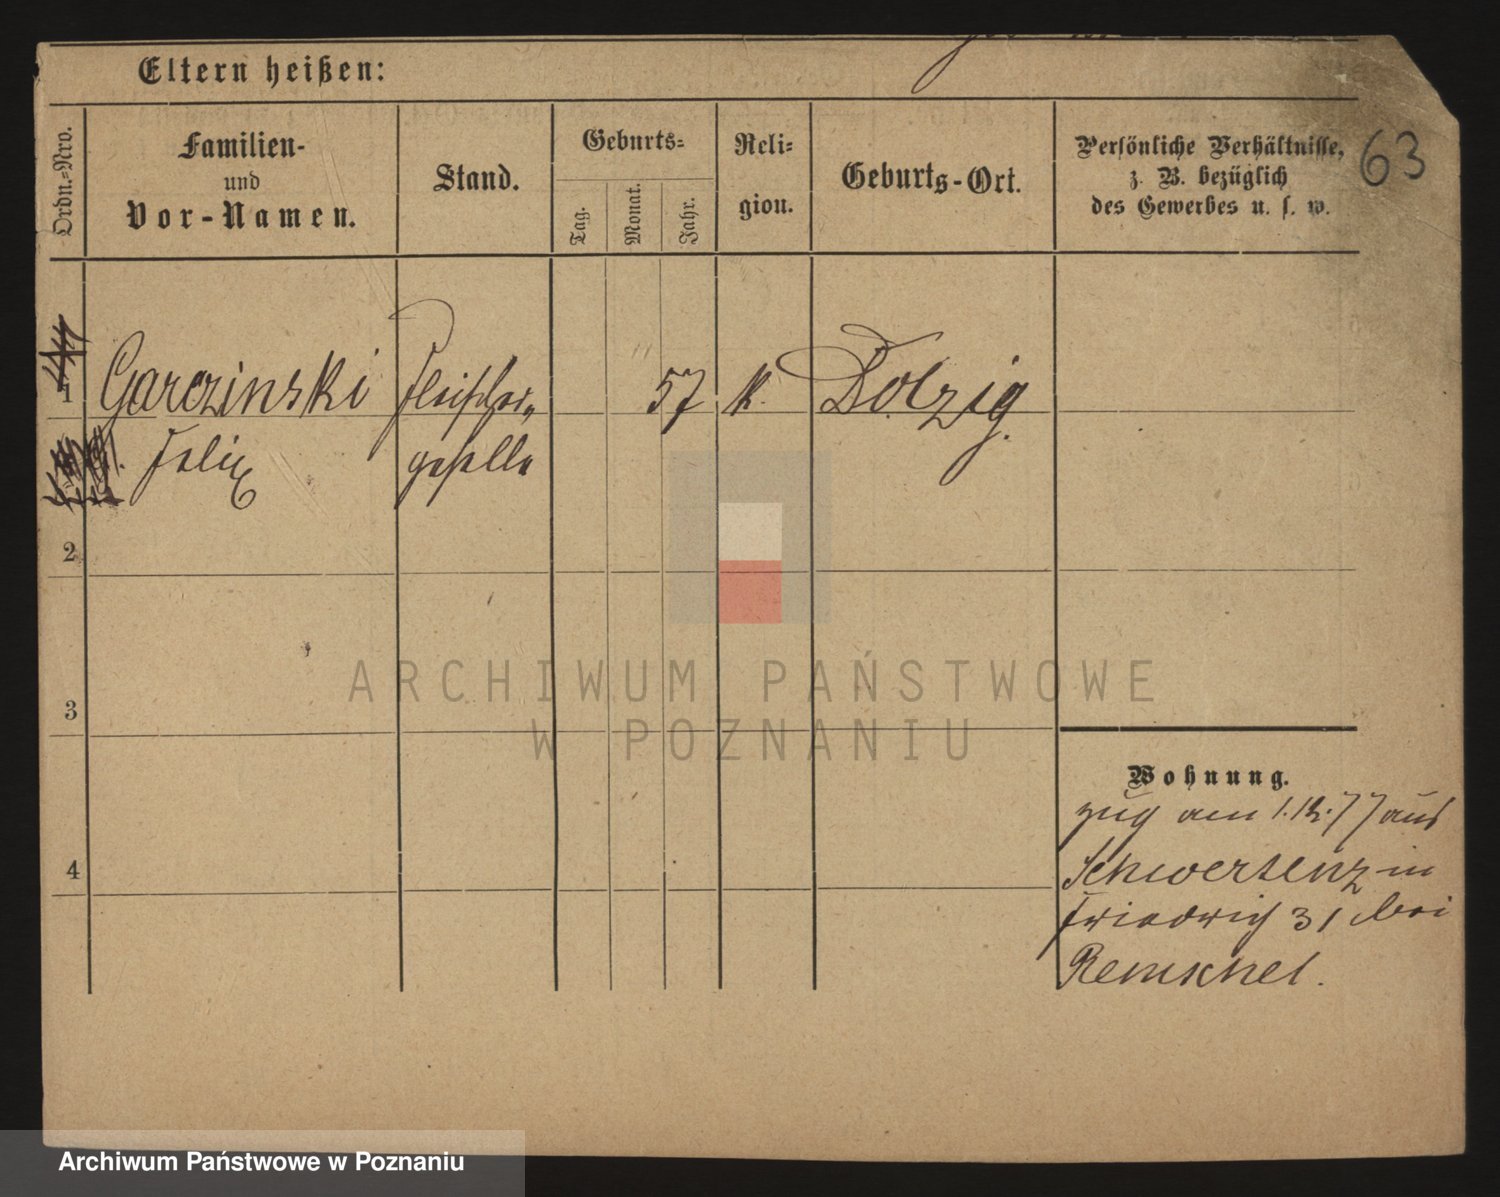 Eltern heißen:
Ordn.-Nro.
Familien-
und
Vor-Namen.
Stand.
Geburts-
Tag.
Monat.
Jahr.
Reli-
gion.
Geburts-Ort.
Persönliche Verhältnisse,
z. B. bezüglich
des Gewerbes u. s. w.
63
1 Garczinski Fleischer- 57 k. Dolzig.
Felix geselle
2
3
4
Wohnung.
zug am 1.12.77 aus
Schwersenz in
Friedrich 31 bei
Remschel.
ARCHIWUM PAŃSTWOWE
W POZNANIU
Archiwum Państwowe w Poznaniu